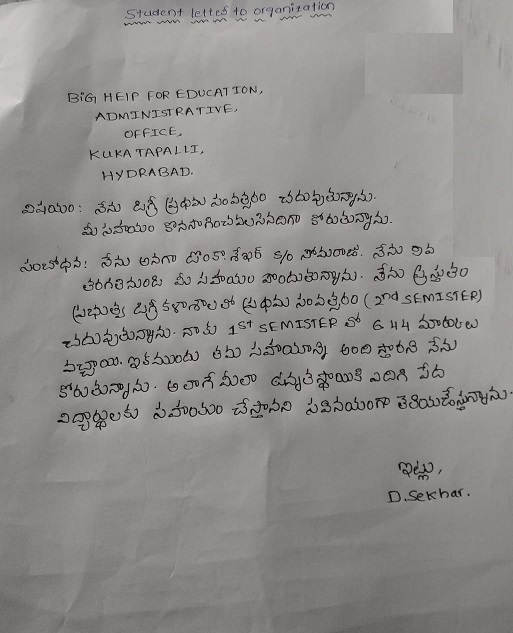 Student letter to organization
BIG HELP FOR EDUCATION,
ADMINISTRATIVE,
OFFICE,
KUKATAPALLI,
HYDRABAD.
విషయం: నేను డిగ్రీ ప్రథమ సంవత్సరం చదువుతున్నాను.
మీ సహాయం కొనసాగించవలసినదిగా కోరుతున్నాను.
సంబోధన: నేను అనగా దొంకా శేఖర్ S/o సోమరాజు. నేను 9వ
తరగతినుండి మీ సహాయం పొందుతున్నాను. నేను ప్రస్తుతం
ప్రభుత్వ డిగ్రీ కళాశాలలో ప్రథమ సంవత్సరం (2nd SEMISTER)
చదువుతున్నాను. నాకు 1ST SEMISTER లో 644 మార్కులు
వచ్చాయి. ఇకముందు తమ సహాయాన్ని అందిస్తారని నేను
కోరుతున్నాను. అలాగే మీలా ఉన్నత స్థాయికి ఎదిగి పేద
విద్యార్థులకు సహాయం చేస్తానని సవినయంగా తెలియజేస్తున్నాను.
ఇట్లు,
D.Sekhar.